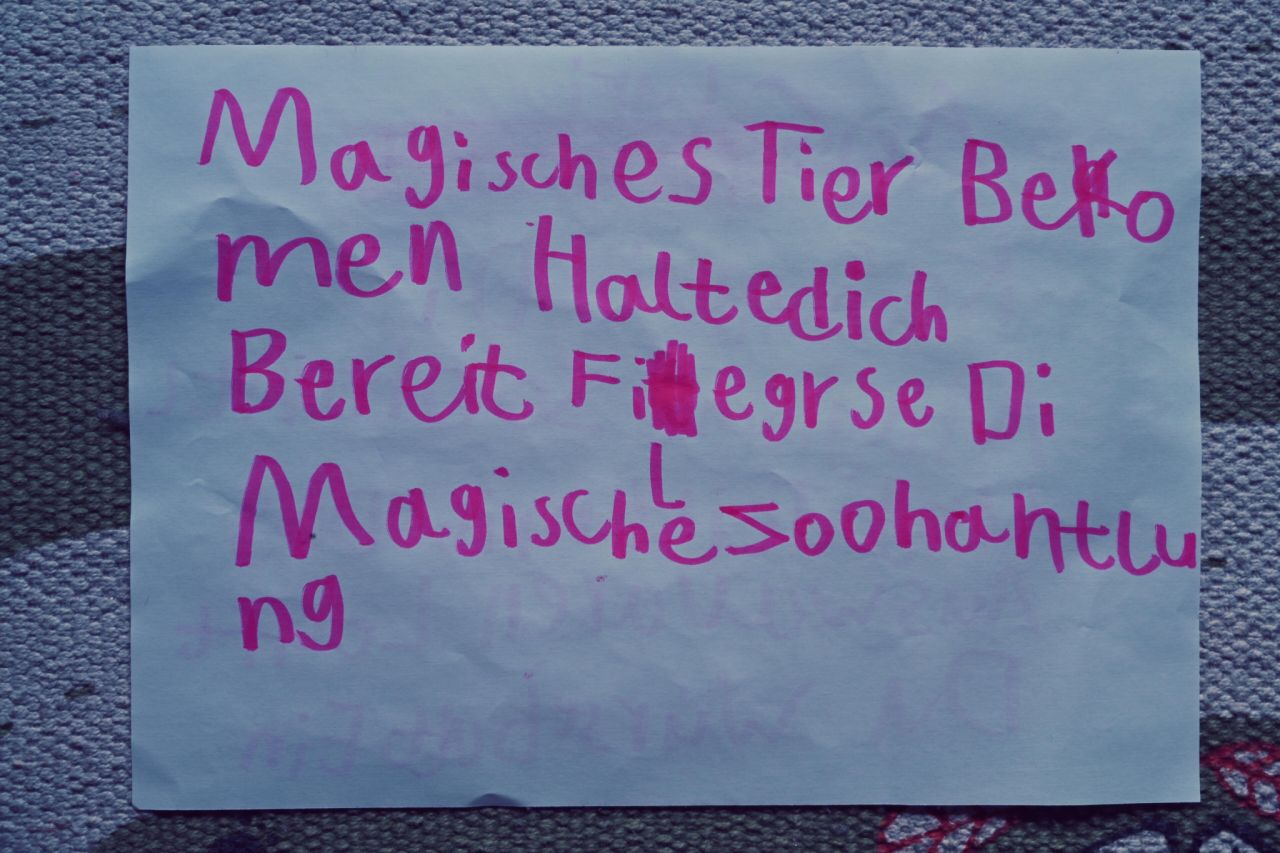 Magisches Tier Beko
men Haltedich
Bereit Filegrse Di
Magische Zoohantlu
ng